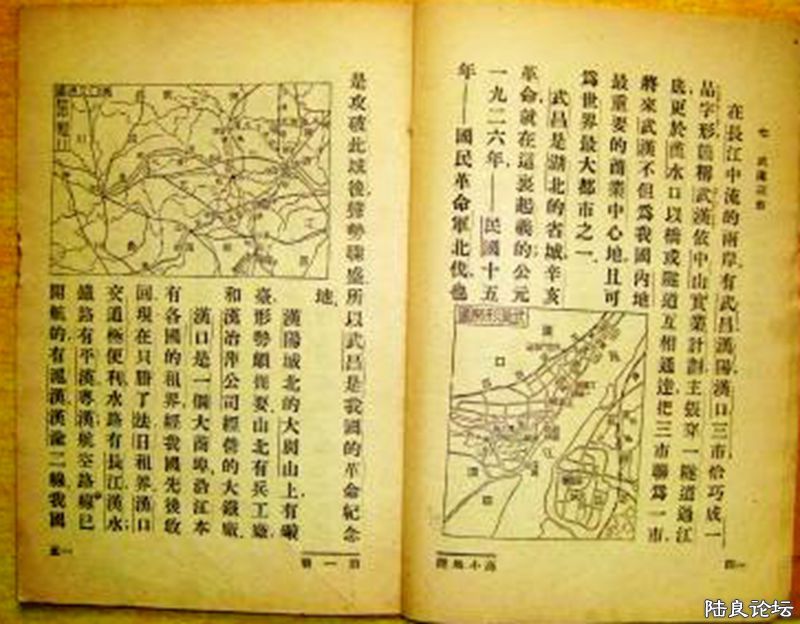 七　武漢三鎮
在長江中流的兩岸有武昌漢陽漢口三市恰巧成一
品字形簡稱武漢依中山實業計劃主張穿一隧道過江
底更於漢水口以橋或隧道互相通連把三市聯爲一市
將來武漢不但爲我國內地
最重要的商業中心地且可
爲世界最大都市之一
武昌是湖北的省城辛亥
革命就在這裏起義的公元
一九二六年——民國十五
年——國民革命軍北伐也
武漢形勢圖
漢
口
高小地理
一四
是攻破此城後聲勢驟盛所以武昌是我國的革命紀念
地
漢陽城北的大別山上有
臺形勢頗扼要山北有兵工廠
和漢冶萍公司經營的大鐵廠
漢口是一個大商埠沿江本
有各國的租界經我國先後收
回現在只賸了法日租界漢口
交通極便利水路有長江漢水
鐵路有平漢粵漢航空路線已
開航的有滬漢漢渝二線我國
第一冊
一五
陆良论坛